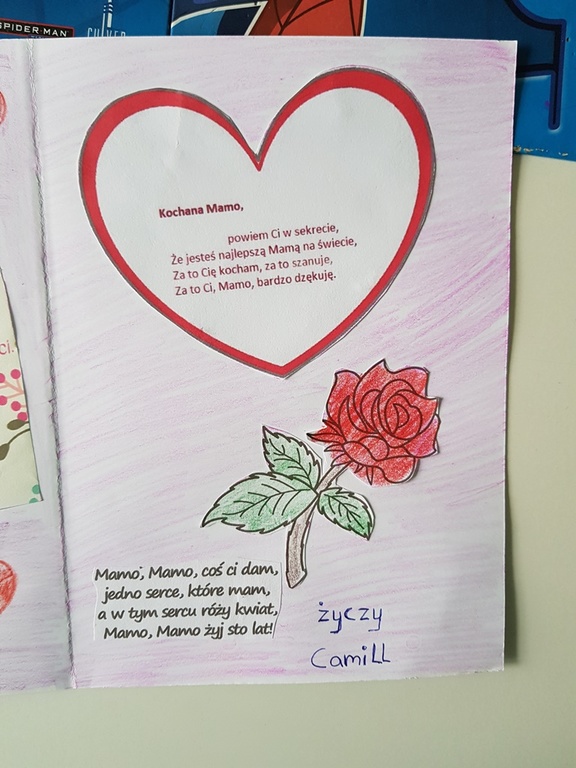 SPIDER MAN
Kochana Mamo,
powiem Ci w sekrecie,
Że jesteś najlepszą Mamą na świecie,
Za to Cię kocham, za to szanuje,
Za to Ci, Mamo, bardzo dzękuję.
ci.
Mamo, Mamo, coś ci dam,
jedno serce, które mam,
a w tym sercu róży kwiat,
Mamo, Mamo żyj sto lat!
życzy
CamiLL